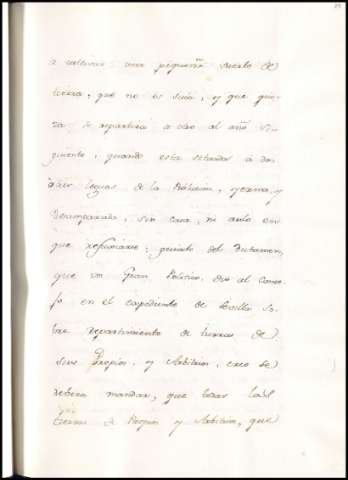 a cultivar una pequeña suerte de
tierra, que no es suia, y que qui-
za se repartirá a otro al año si-
guiente, quando esta situada a dos
ó tres leguas de la Poblacion, yerma, y
desamparada, sin casa, ni arbol en
que refugiarse; guiado del dictamen,
que un Gran Politico, dió al Conse-
jo en el expediente de Sevilla so-
bre repartimiento de tierras de
sus Propios, y Arbitrios, creo se
debera mandar, que todas las
tierras de Propios y Arbitrios, que